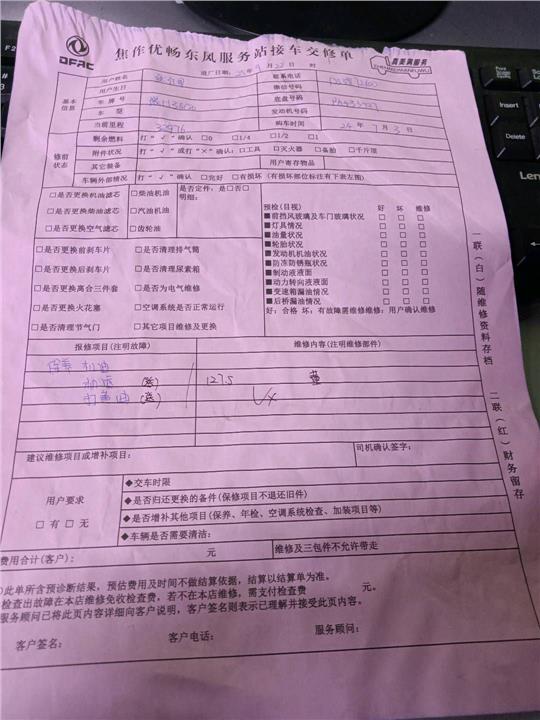 DFAC
焦作优畅东风服务站接车交修单
真美满服务
ZHENMEIMANFUWU
进厂日期: 年 9 月 22 日 时
基本信息
用户姓名 联系电话
用户生日 微信号码
车牌号 底盘号码
车型 发动机号码
当前里程 32976 购车时间 24 年 7 月 3 日
修前状态
剩余燃料 打“√”确认 □0 □1/4 □1/2 □1
附件状况 打“√”或打“×”确认:□工具 □灭火器 □备胎 □千斤顶
其它装备 用户寄存物品
车辆外部情况 打“√”确认 □完好 □有损坏(有损坏部位标注有下表左图)
□是否更换机油滤芯 □柴油机油 是否定件,是□否□
□是否更换柴油滤芯 □汽油机油 明细:
□是否更换空气滤芯 □齿轮油
□是否更换前刹车片 □是否清理排气筒
□是否更换后刹车片 □是否清理尿素箱
□是否更换离合三件套 □是否为电气维修
□是否更换火花塞 □空调系统是否正常运行
□是否清理节气门 □其它项目维修及更换
预检(目视) 好 坏 维修
■前挡风玻璃及车门玻璃状况 □ □ □
■灯具情况 □ □ □
■油量状况 □ □ □
■轮胎状况 □ □ □
■发动机机油状况 □ □ □
■防冻防锈瓶状况 □ □ □
■制动液液面 □ □ □
■动力转向液液面 □ □ □
■变速箱漏油情况 □ □ □
■后桥漏油情况 □ □ □
好:合格 坏:有故障需维修维修:用户确认维修
报修项目(注明故障) 维修内容(注明维修部件)
保养 机油
(送) 1275
(送)
建议维修项目或增补项目: 司机确认签字:
用户要求
□有 □无
◆交车时限
◆是否归还更换的备件(保修项目不退还旧件)
◆是否增补其他项目(保养、年检、空调系统检查、加装项目等)
◆车辆是否需要清洁:
费用合计(客户): 元 维修及三包件不允许带走
此单所含预诊断结果,预估费用及时间不做结算依据,结算以结算单为准。
检查出故障在本店维修免收检查费,若不在本店维修,需支付检查费 元。
服务顾问已将此页内容详细向客户说明,客户签名则表示已理解并接受此页内容。
客户签名: 客户电话: 服务顾问:
一联(白)随维修资料存档
二联(红)财务留存
F2
Insert
Delete
End
Leno